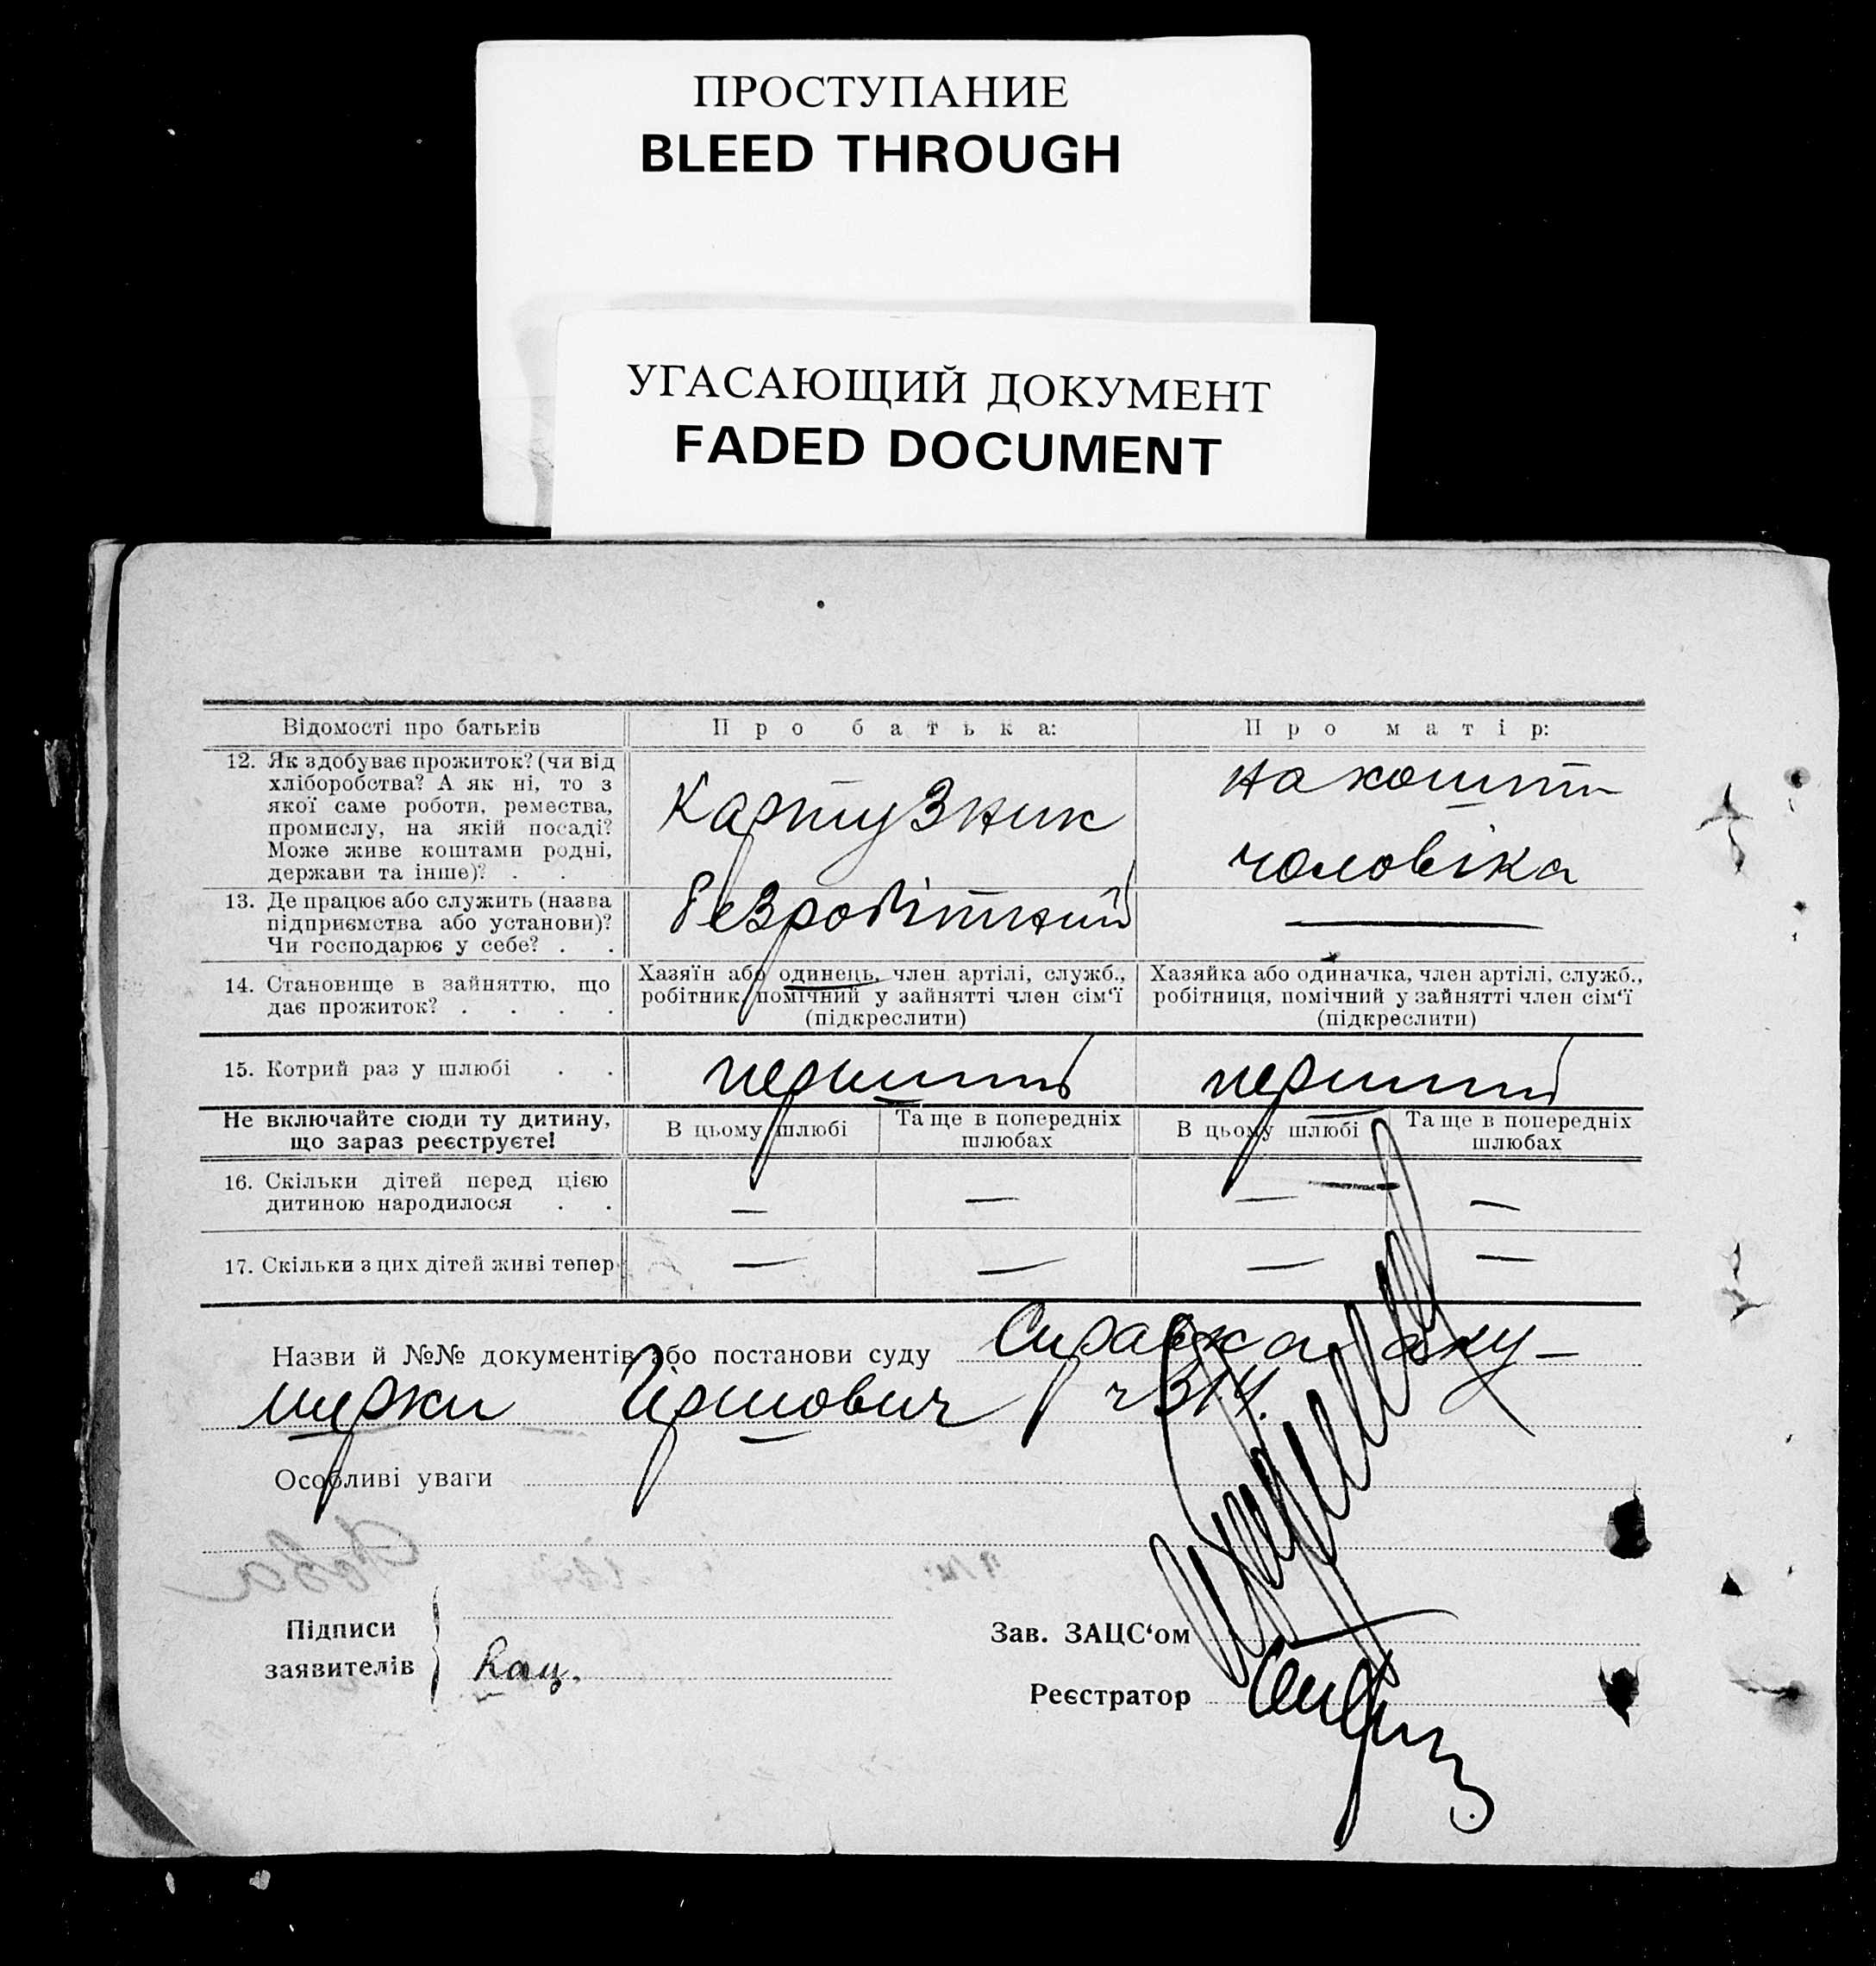 ПРОСТУПАНИЕ
BLEED THROUGH
УГАСАЮЩИЙ ДОКУМЕНТ
FADED DOCUMENT
Відомості про батьків
Про батька:
Про матір:
12. Як здобуває прожиток? (чи від
хліборобства? А як ні, то з
якої саме роботи, ремества,
промислу, на якій посаді?
Може живе коштами родні,
держави та інше)? . .
Картузник
на кошти
чоловіка
13. Де працює або служить (назва
підприємства або установи)?
Чи господарює у себе? . .
безробітний
—
14. Становище в зайняттю, що
дає прожиток? . . . .
Хазяїн або одинець, член артілі, служб.,
робітник, помічний у зайнятті член сім‘ї
(підкреслити)
Хазяйка або одиначка, член артілі, служб.,
робітниця, помічний у зайнятті член сім‘ї
(підкреслити)
15. Котрий раз у шлюбі . .
перший
перший
Не включайте сюди ту дитину,
що зараз реєструєте!
В цьому шлюбі
Та ще в попередніх
шлюбах
В цьому шлюбі
Та ще в попередніх
шлюбах
16. Скільки дітей перед цією
дитиною народилося . .
— — — —
17. Скільки з цих дітей живі тепер
— — — —
Назви й №№ документів або постанови суду Справка аку-
шерки Гіршович ч 314.
Особливі уваги
Підписи
заявителів
Кац.
Зав. ЗАЦС‘ом
Реєстратор